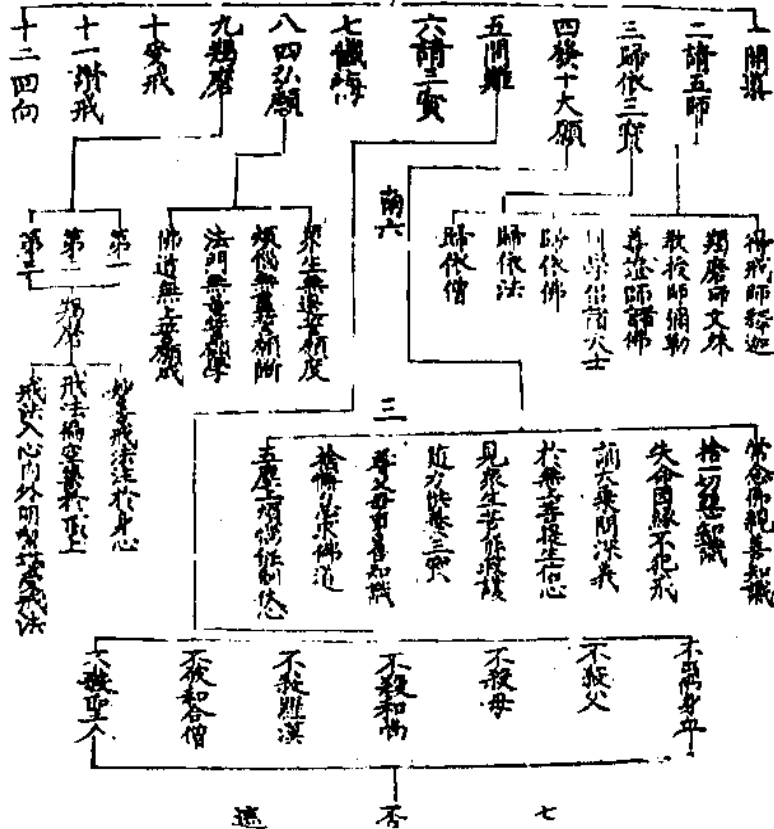 一開導
二請五師
三歸依三寶
四發十大願
五問難
六請三寶
七懺悔
八四弘願
九羯磨
十安戒
十一謝戒
十二回向
得戒師釋迦
羯磨師文殊
教授師彌勒
尊證師諸佛
同學侶諸大士
歸依佛
歸依法
歸依僧
眾生無邊誓願度
煩惱無盡誓願斷
法門無量誓願學
佛道無上誓願成
第一
第二
第三
羯磨
妙善戒法注於身心
戒法徧空聚於頂上
戒法入心內外明
三
常念佛親善知識
捨一切惡知識
失命因緣不犯戒
誦大乘問深義
於無上菩提生信心
見眾生苦能救護
近力供養三寶
孝父母事善知識
捨懈怠求佛道
五塵上煩惱能制伏心
不出佛身血
不殺父
不殺母
不殺和尚
不殺羅漢
不破和合僧
不殺聖人
七
否
遮